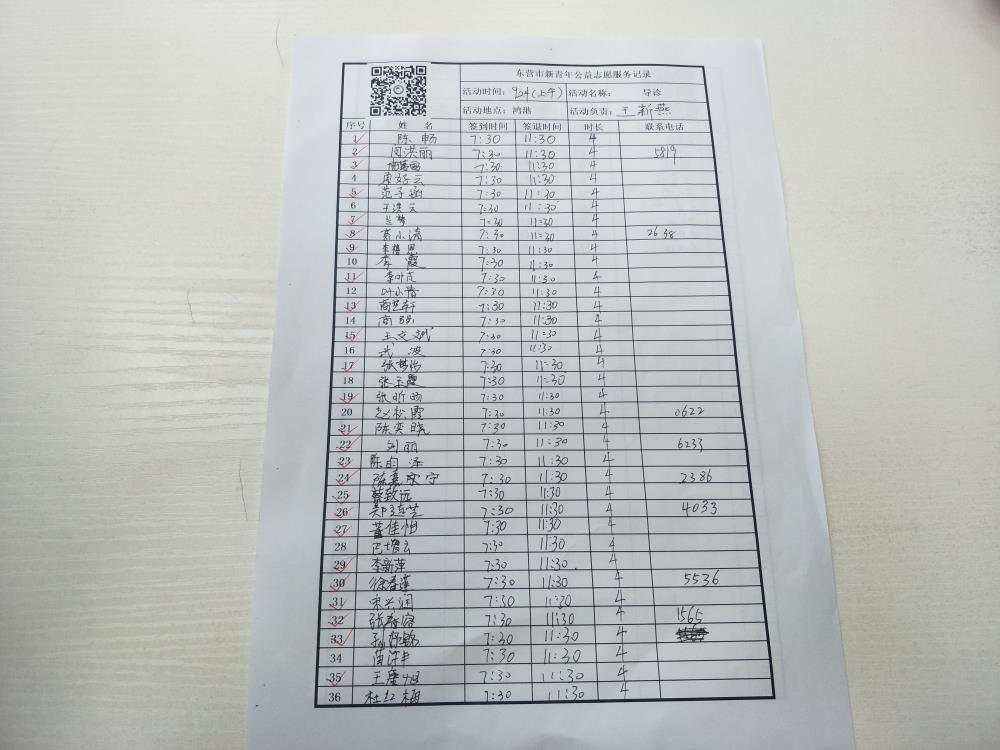 东营市新青年公益志愿服务记录
活动时间: 9.24(上午) 活动名称: 导诊
活动地点: 鸿港 活动负责: 王新燕
序号 姓 名 签到时间 签退时间 时长 联系电话
1 陈畅 7:30 11:30 4
2 闫洪丽 7:30 11:30 4 5819
3 7:30 11:30 4
4 7:30 11:30 4
5 范子涵 7:30 11:30 4
6 王洪云 7:30 11:30 4
7 兰梦 7:30 11:30 4
8 7:30 11:30 4 2638
9 7:30 11:30 4
10 李霞 7:30 11:30 4
11 李叶芷 7:30 11:30 4
12 叶小青 7:30 11:30 4
13 商艺轩 7:30 11:30 4
14 商强 7:30 11:30 4
15 王文斌 7:30 11:30 4
16 武波 7:30 11:30 4
17 7:30 11:30 4
18 张玉霞 7:30 11:30 4
19 张昕雨 7:30 11:30 4
20 赵松霞 7:30 11:30 4 0622
21 陈奕晓 7:30 11:30 4
22 刘丽 7:30 11:30 4 6233
23 陈昀泽 7:30 11:30 4
24 7:30 11:30 4 2386
25 蔡致远 7:30 11:30 4
26 郑连芝 7:30 11:30 4 4033
27 董佳怡 7:30 11:30 4
28 巴增云 7:30 11:30 4
29 李新萍 7:30 11:30 4
30 徐春莲 7:30 11:30 4 5536
31 宋兴润 7:30 11:30 4
32 7:30 11:30 4 1565
33 7:30 11:30 4
34 7:30 11:30 4
35 7:30 11:30 4
36 杜红梅 7:30 11:30 4